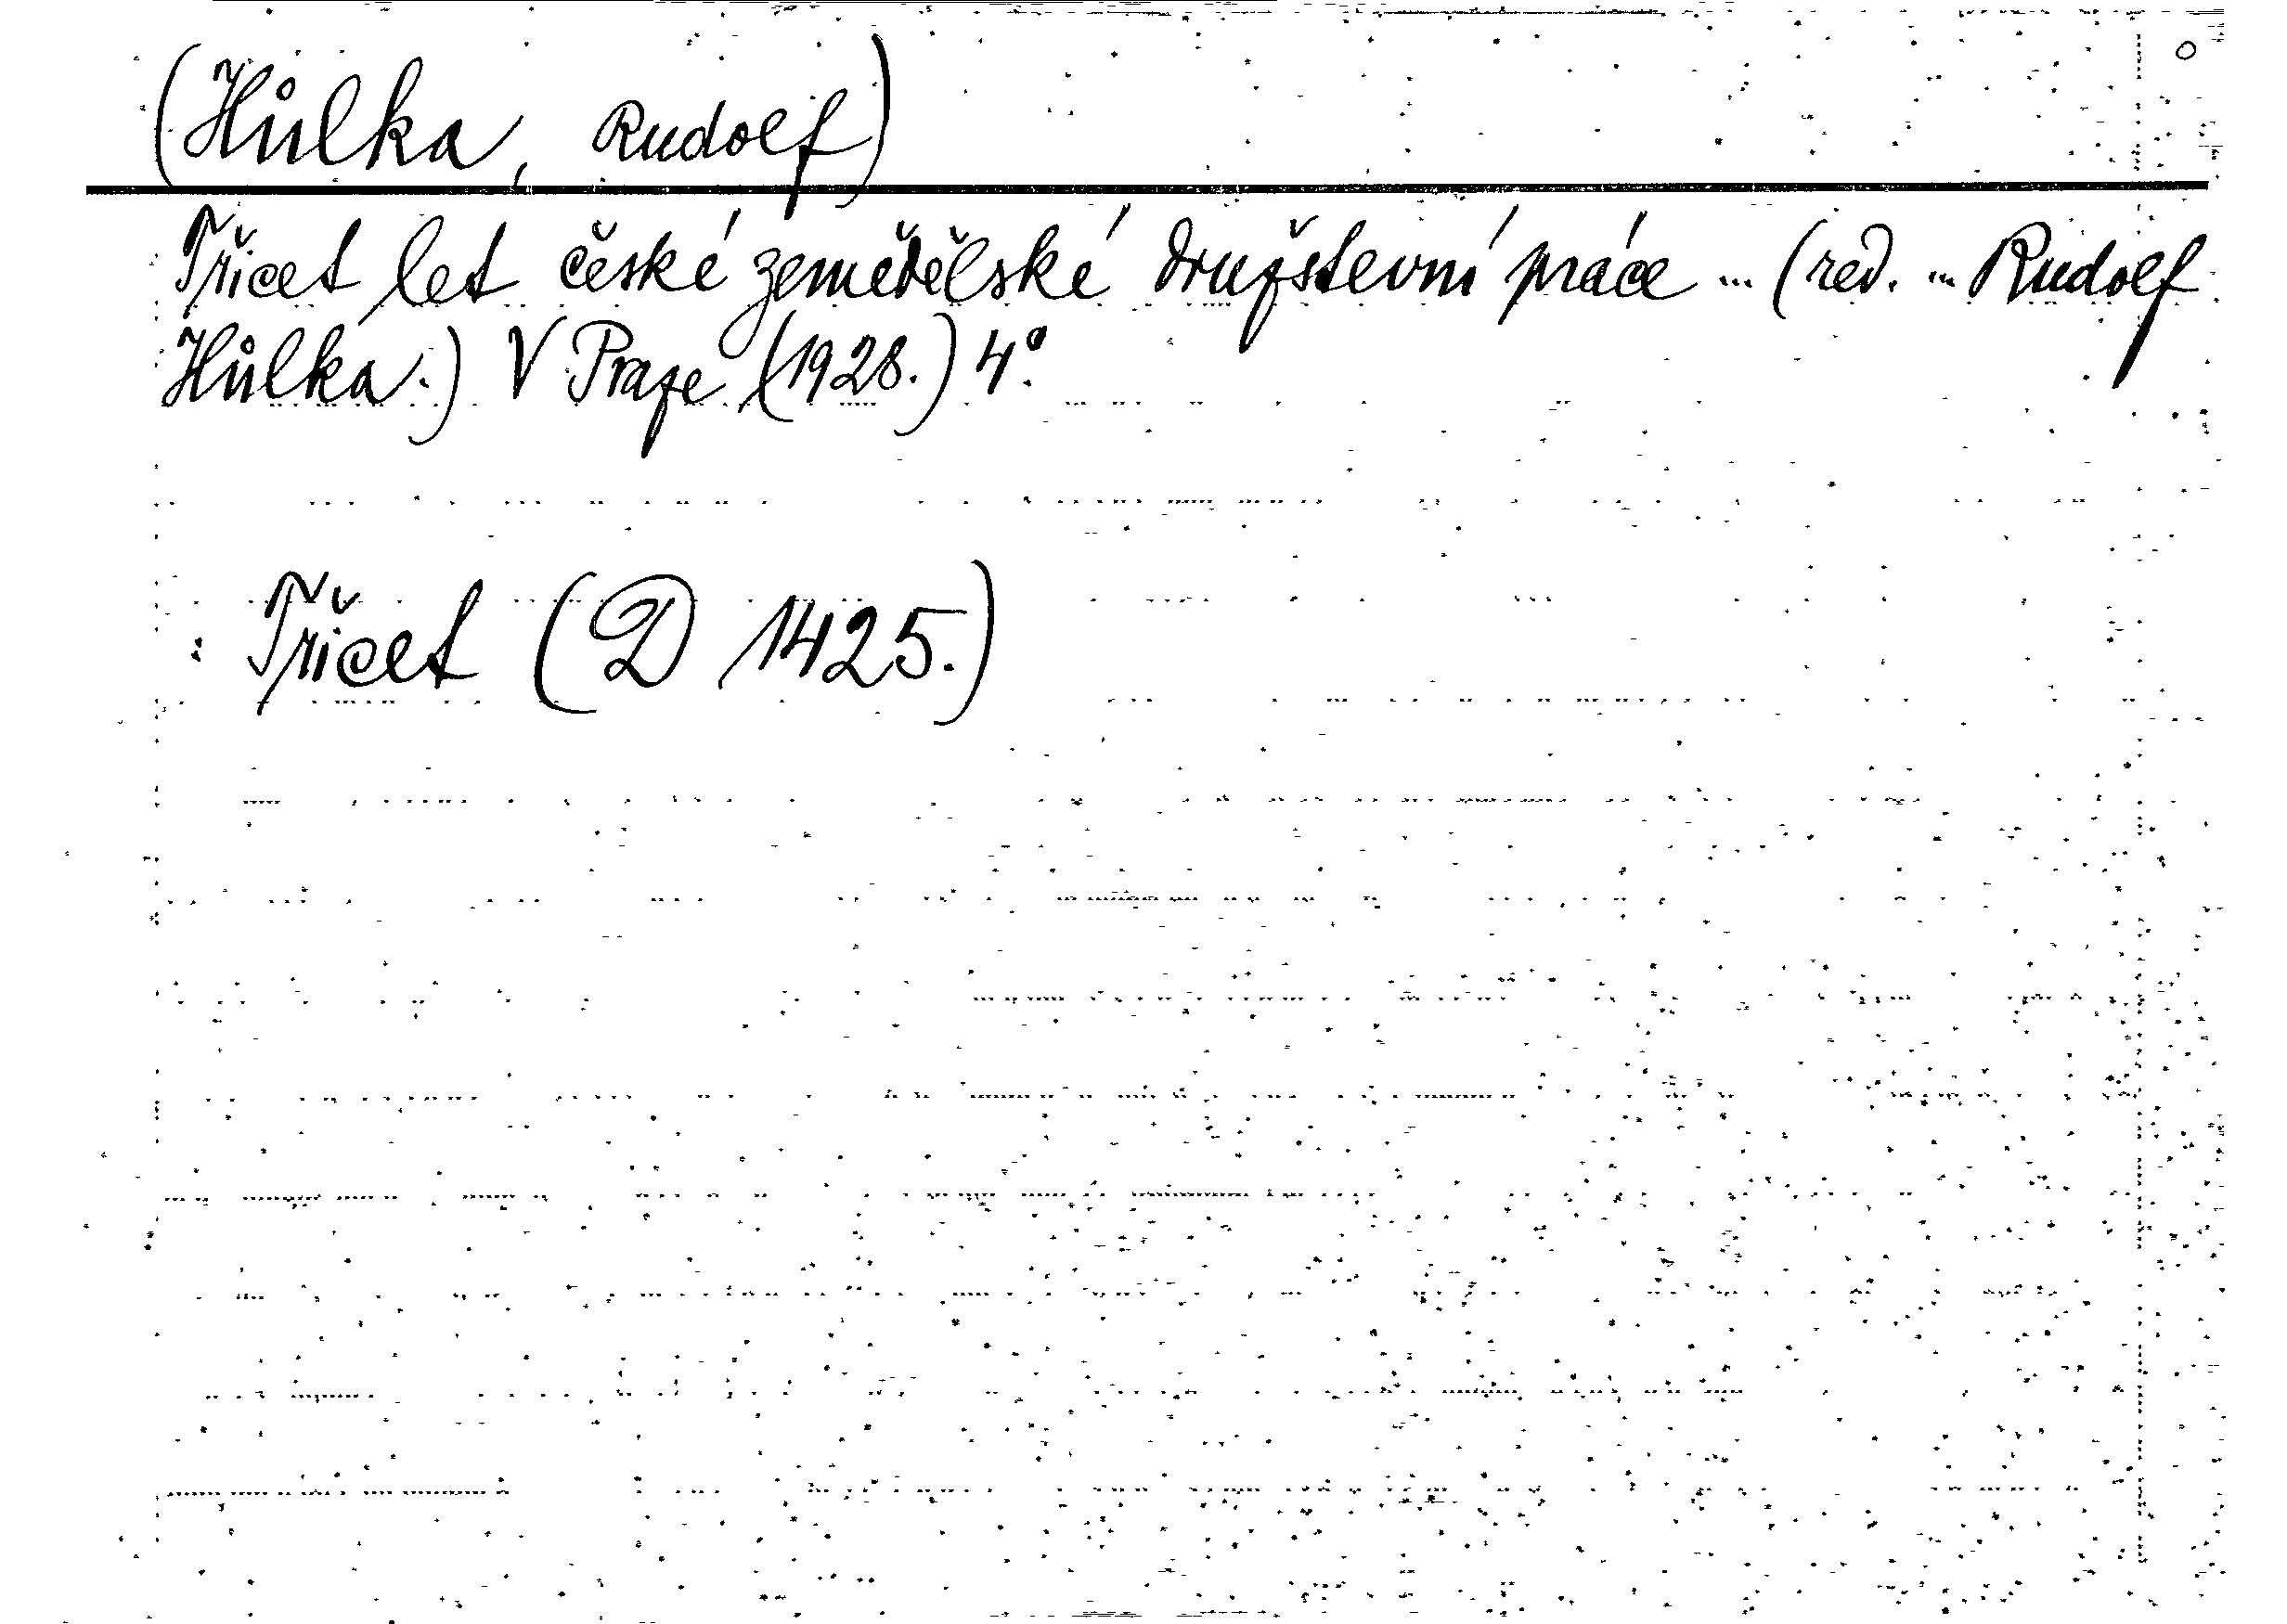 (Hůlka, Rudolf)
Třicet let české zemědělské družstevní práce ... (red. ... Rudolf
Hůlka.) V Praze (1928.) 4°.
: Třicet (D 1425.)